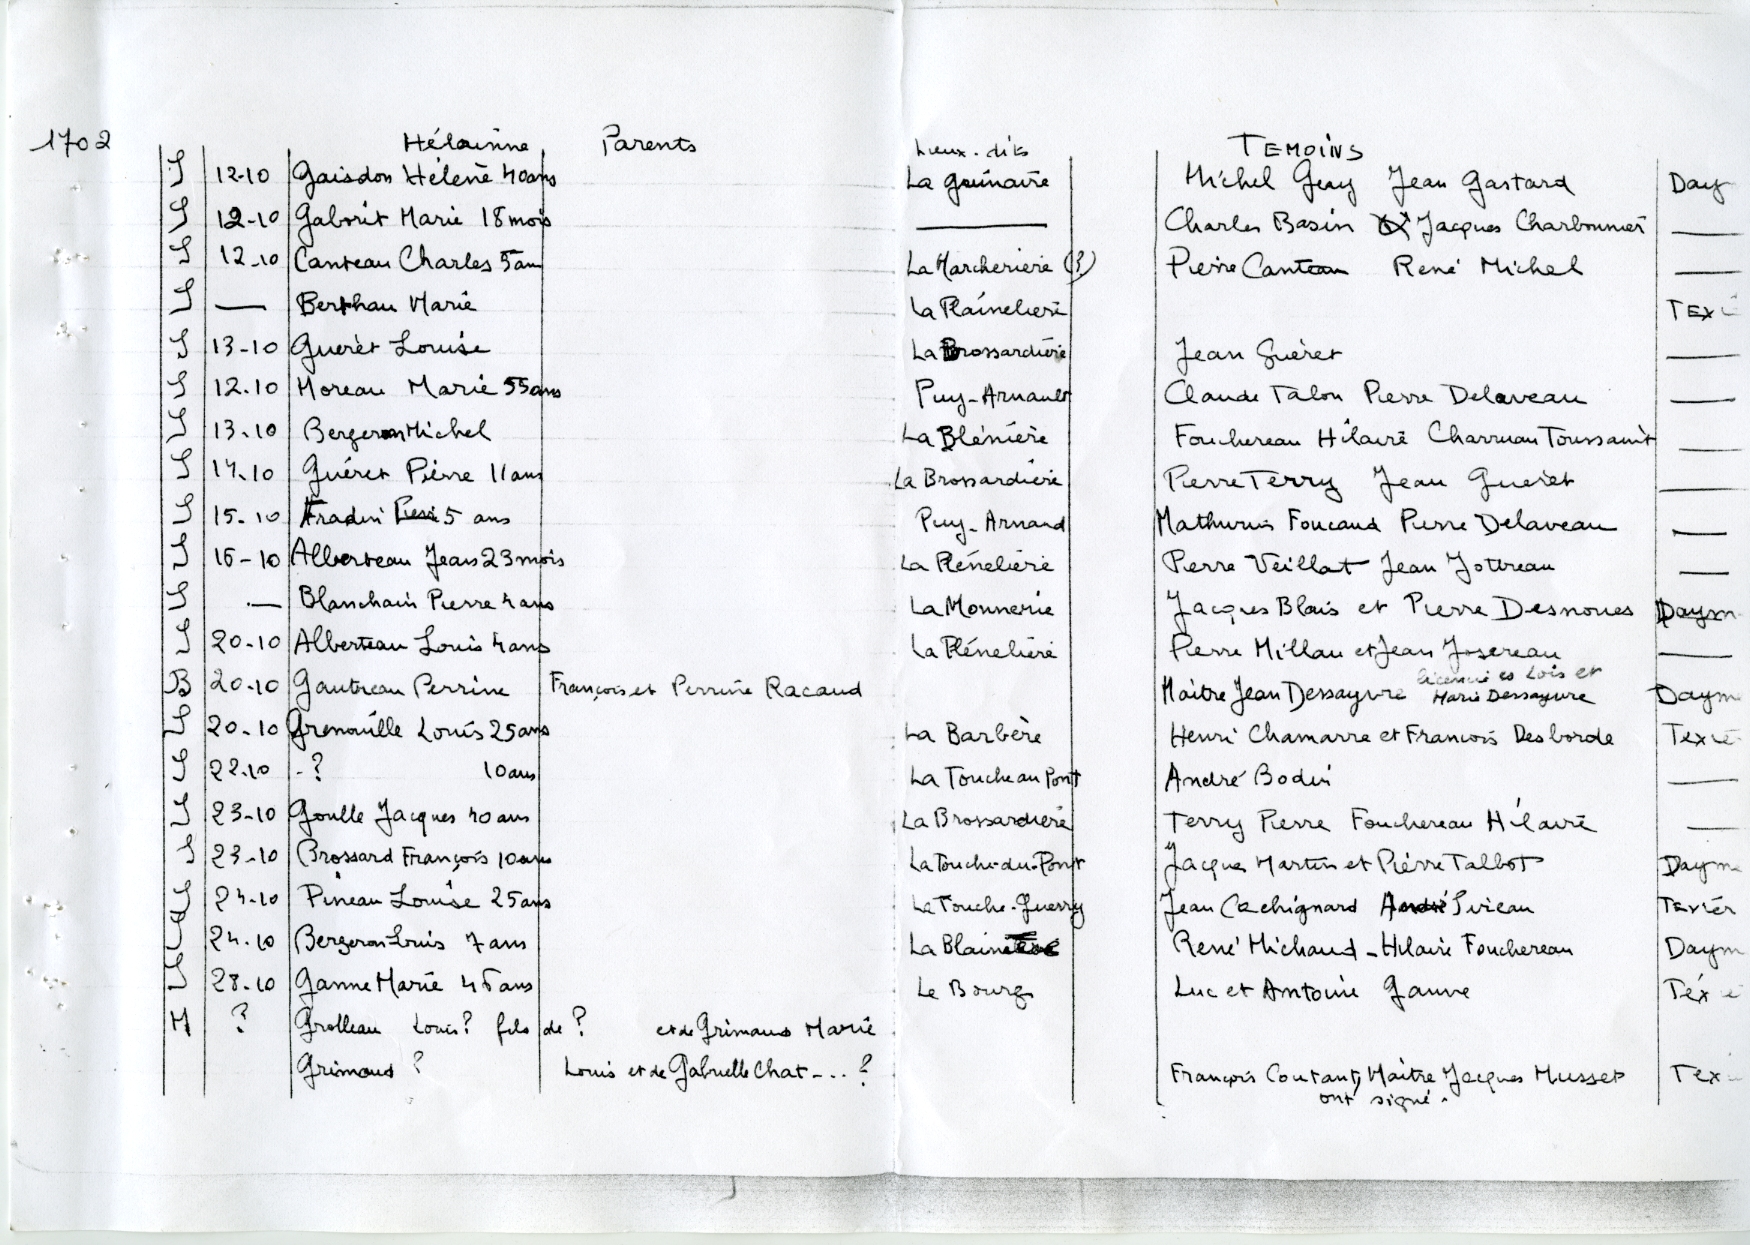 1702 Hélainne Parents Lieux-dits TEMOINS
S 12-10 Gaisdon Hélène 40ans La Michel Geay Jean Gastard Day
S 12-10 Gaborit Marie 18 mois — Charles Basin Jacques Charbonnier —
S 12-10 Canteau Charles 5ans La Marcheriere (?) Pierre Canteau René Michel —
S — Berthau Marie La Plaineliere TEXi
S 13-10 Guerèt Louise La Brossardière Jean Guèret —
S 12.10 Moreau Marie 55ans Puy-Arnault Claude Talon Pierre Delaveau —
S 13.10 Bergeron Michel La Blénière Fouchereau Hilaire Charruau Toussaint —
S 14.10 Guéret Pierre 11ans La Brossardière Pierre Terry Jean Guéret —
S 15-10 Fradin Pierre 5 ans Puy-Arnaud Mathurin Foucaud Pierre Delaveau —
S 16-10 Alberteau Jean 23 mois La Pléneliere Pierre Veillat Jean Jottreau —
S — Blanchain Pierre 4 ans La Monnerie Jacques Blais et Pierre Desnoues Daym
S 20-10 Alberteau Louis 4ans La Pléneliere Pierre Millau et Jean Josereau —
licencié es Lois et
B 20-10 Gautreau Perrine François et Perrine Racaud Maître Jean Dessayvre Marie Dessayvre Daym
S 20-10 Grenouille Louis 25ans La Barbère Henri Chamarre et François Desborde Texie
S 22.10 -? 10ans La Touche au Pont André Bodin —
S 23-10 Goulle Jacques 40 ans La Brossardiere Terry Pierre Fouchereau Hilaire —
S 23-10 Brossard François 10ans La Touche-du-Pont Jacques Martin et Pierre Talbot Dayme
S 24-10 Pineau Louise 25ans La Touche-Guerry Jean Cachignard Pineau Texier
S 24.10 Bergeron Louis 7 ans René Michaud - Hilaire Fouchereau Daym
S 28-10 Ganne Marie 46 ans Le Bourg Luc et Antoine Ganne Téxie
M ? Grolleau Louis? fils de ? et de Grimaud Marie
Grimaud ? Louis et de Gabrielle Chat-...? François Coutant, Maitre Jacques Musset Tex
ont signé.